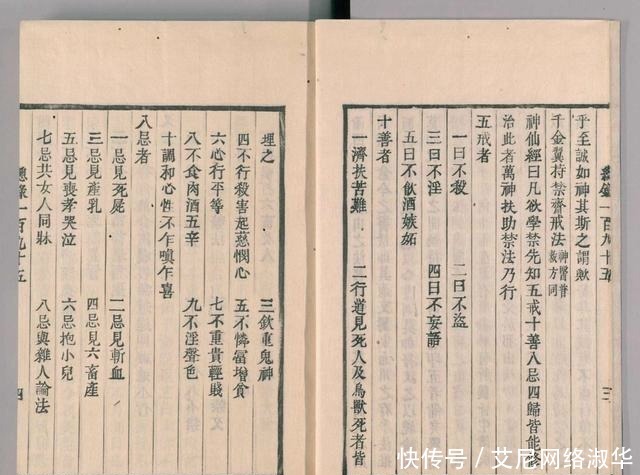 乎至誠如神其斯之謂歟
千金翼持禁齋戒法 神醫普救方同
神仙經曰凡欲學禁先知五戒十善八忌四歸皆能修
治此者萬神扶助禁法乃行
五戒者
一曰不殺 二曰不盜
三曰不淫 四曰不妄語
五曰不飲酒嫉妬
十善者
一濟扶苦難 二行道見死人及鳥獸死者皆
埋之 三欽重鬼神
四不行殺害起慈憫心 五不憐富增貧
六心行平等 七不重貴輕賤
八不食肉酒五辛 九不淫聲色
十調和心性不乍嗔乍喜
八忌者
一忌見死屍 二忌見斬血
三忌見產乳 四忌見六畜產
五忌見喪孝哭泣 六忌抱小兒
七忌共女人同牀 八忌與雜人論法
總錄一百九十五 三
總錄一百九十五 四
快传号／艾尼网络淑华